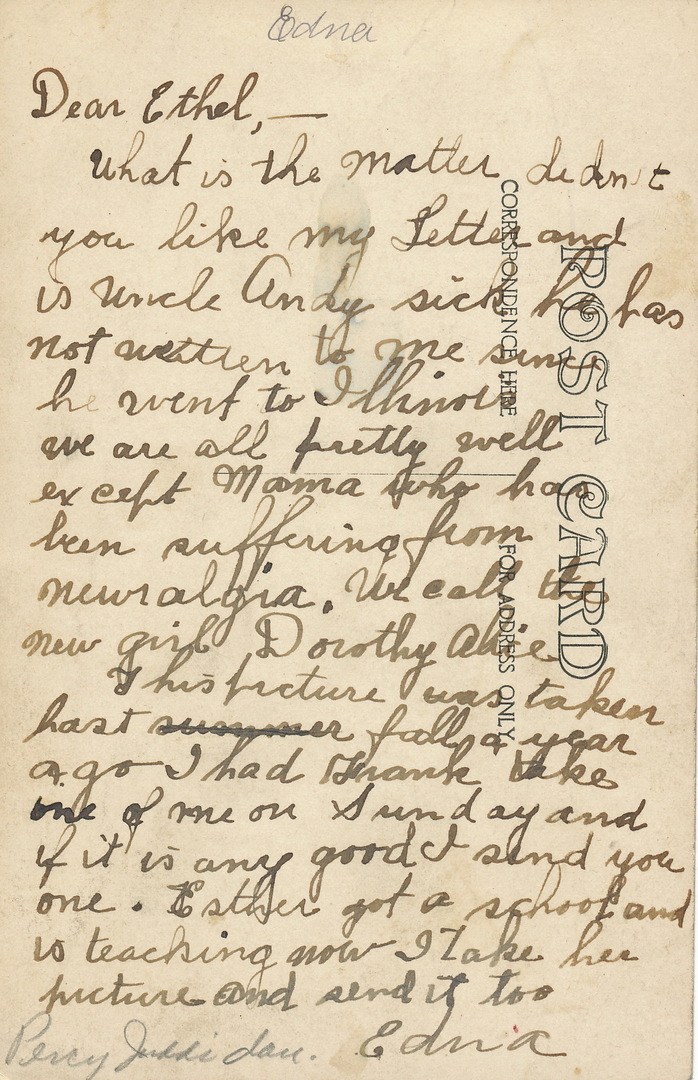 Edna
Dear Ethel, —
What is the matter didn't
you like my Letter and
is Uncle Andy sick he has
not written to me since
he went to Illinois
we are all pretty well
except Mama who has
been suffering from
newralgia. We call the
new girl Dorothy Alice
This picture was taken
last summer fall a year
ago I had Frank take
one of me on Sunday and
if it is any good I send you
one. Esther got a school and
is teaching now I take her
picture and send it too
Edna
Percy
POST CARD
CORRESPONDENCE HERE
FOR ADDRESS ONLY.